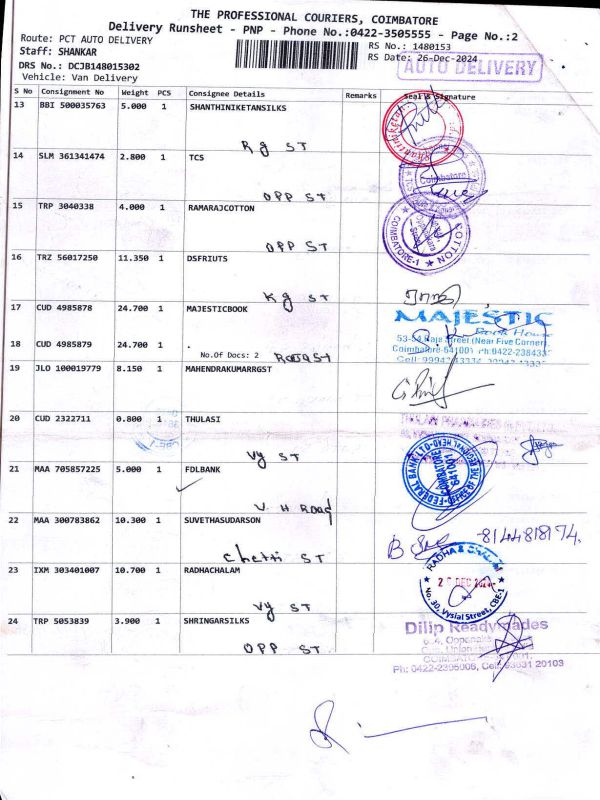 THE PROFESSIONAL COURIERS, COIMBATORE
Delivery Runsheet - PNP - Phone No.:0422-3505555 - Page No.:2
Route: PCT AUTO DELIVERY
RS No.: 1480153
Staff: SHANKAR
RS Date: 26-Dec-2024
AUTO DELIVERY
DRS No.: DCJB148015302
Vehicle: Van Delivery
S No Consignment No Weight PCS Consignee Details Remarks Seal & Signature
13 BBI 500035763 5.000 1 SHANTHINIKETANSILKS
Rg ST
14 SLM 361341474 2.800 1 TCS
OPP ST
Coimbatore
15 TRP 3040338 4.000 1 RAMARAJCOTTON
OPP ST
KOTTON
COIMBATORE-1
16 TRZ 56017250 11.350 1 DSFRIUTS
Kg ST
17 CUD 4985878 24.700 1 MAJESTICBOOK
MAJESTIC
Book House
53-54, Raja Street (Near Five Corner)
Coimbatore-641001 Ph:0422-238433
18 CUD 4985879 24.700 1 .
No.Of Docs: 2 Raja ST
19 JLO 100019779 8.150 1 MAHENDRAKUMARRGST
20 CUD 2322711 0.800 1 THULASI
Vy ST
21 MAA 705857225 5.000 1 FDLBANK
V H Road
FEDERAL BANK LTD
COIMBATORE
641001
22 MAA 300783862 10.300 1 SUVETHASUDARSON
Chetti ST
8144818174.
23 IXM 303401007 10.700 1 RADHACHALAM
Vy ST
RADHA &
DEC
No. 30, Vysial Street, CBE-1
24 TRP 5053839 3.900 1 SHRINGARSILKS
OPP ST
Dilip Readymades
Ph: 0422-2395006, Cell: 93631 20103